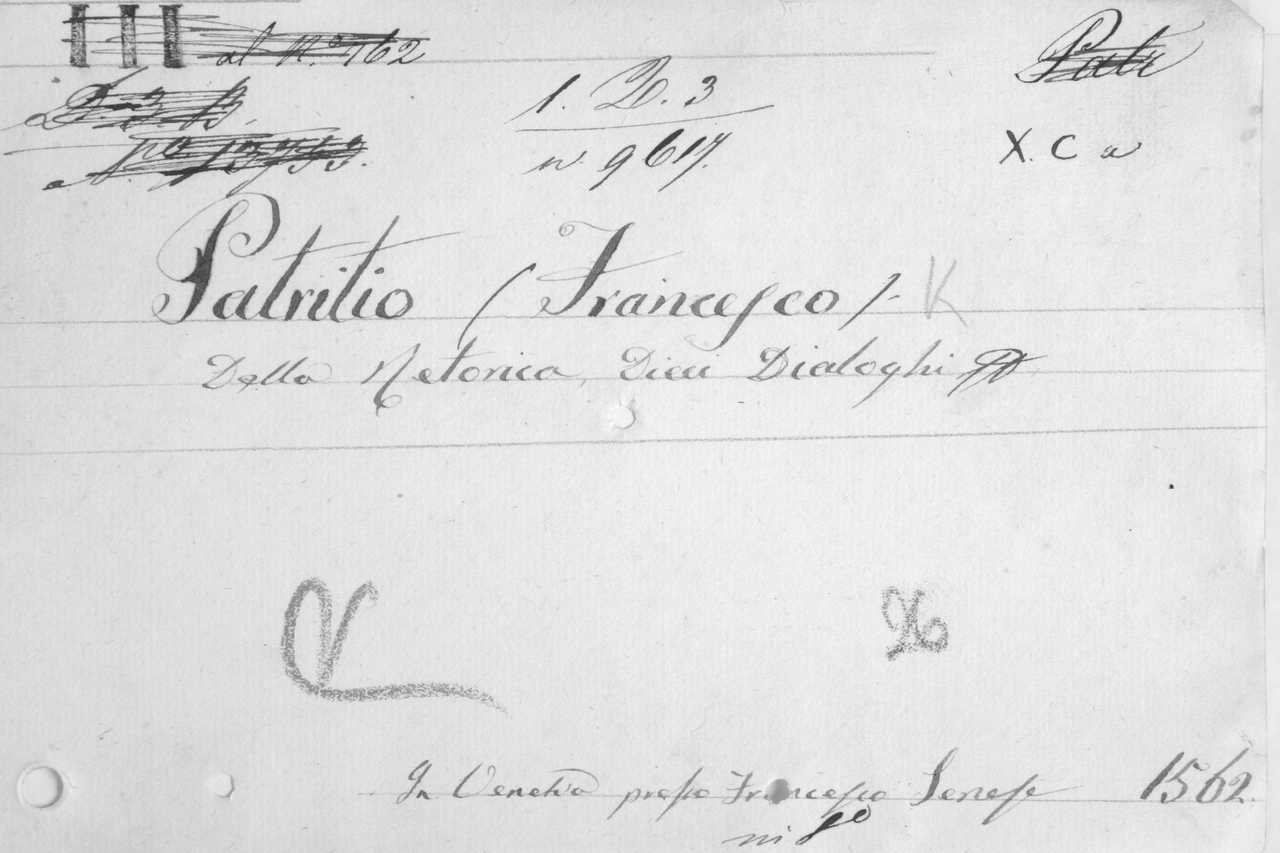 III al N.º 162
Patr
1. D. 3
n. 9617.
X. C a
Patritio (Francesco). K
Della Retorica, Dieci Dialoghi
In Venetia presso Francesco Senese 1562.
in fº